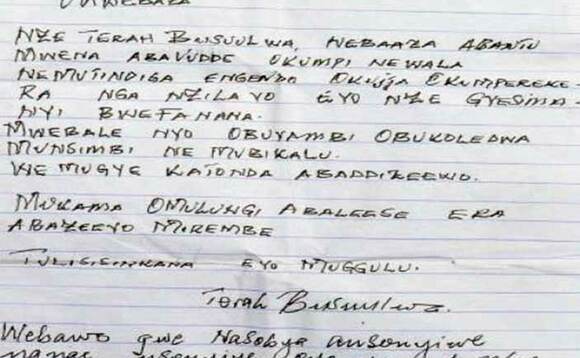 NZE TERAH BUSUULWA, NEBAAZA ABANTU
MWENA ABAVUDDE OKUMPI NEWALA
NEMUTINDIGA ENGENDO OKUJJA OKUMPEREKE-
RA NGA NZILAYO EYO NZE GYESIMA-
NYI BWEFANANA.
MWEBALE NYO OBUYAMBI OBUKOLEDWA
MUNSIMBI NE MUBIKALU.
WE MUGYE KATONDA ABADDIZEEWO.
MUKAMA OMULUNGI ABALEESE ERA
ABAZEEYO MIREMBE
TULISISINKANA EYO MUGGULU.
Terah Busuulwa.
Webawo gwe Nasobya ansonyiwe